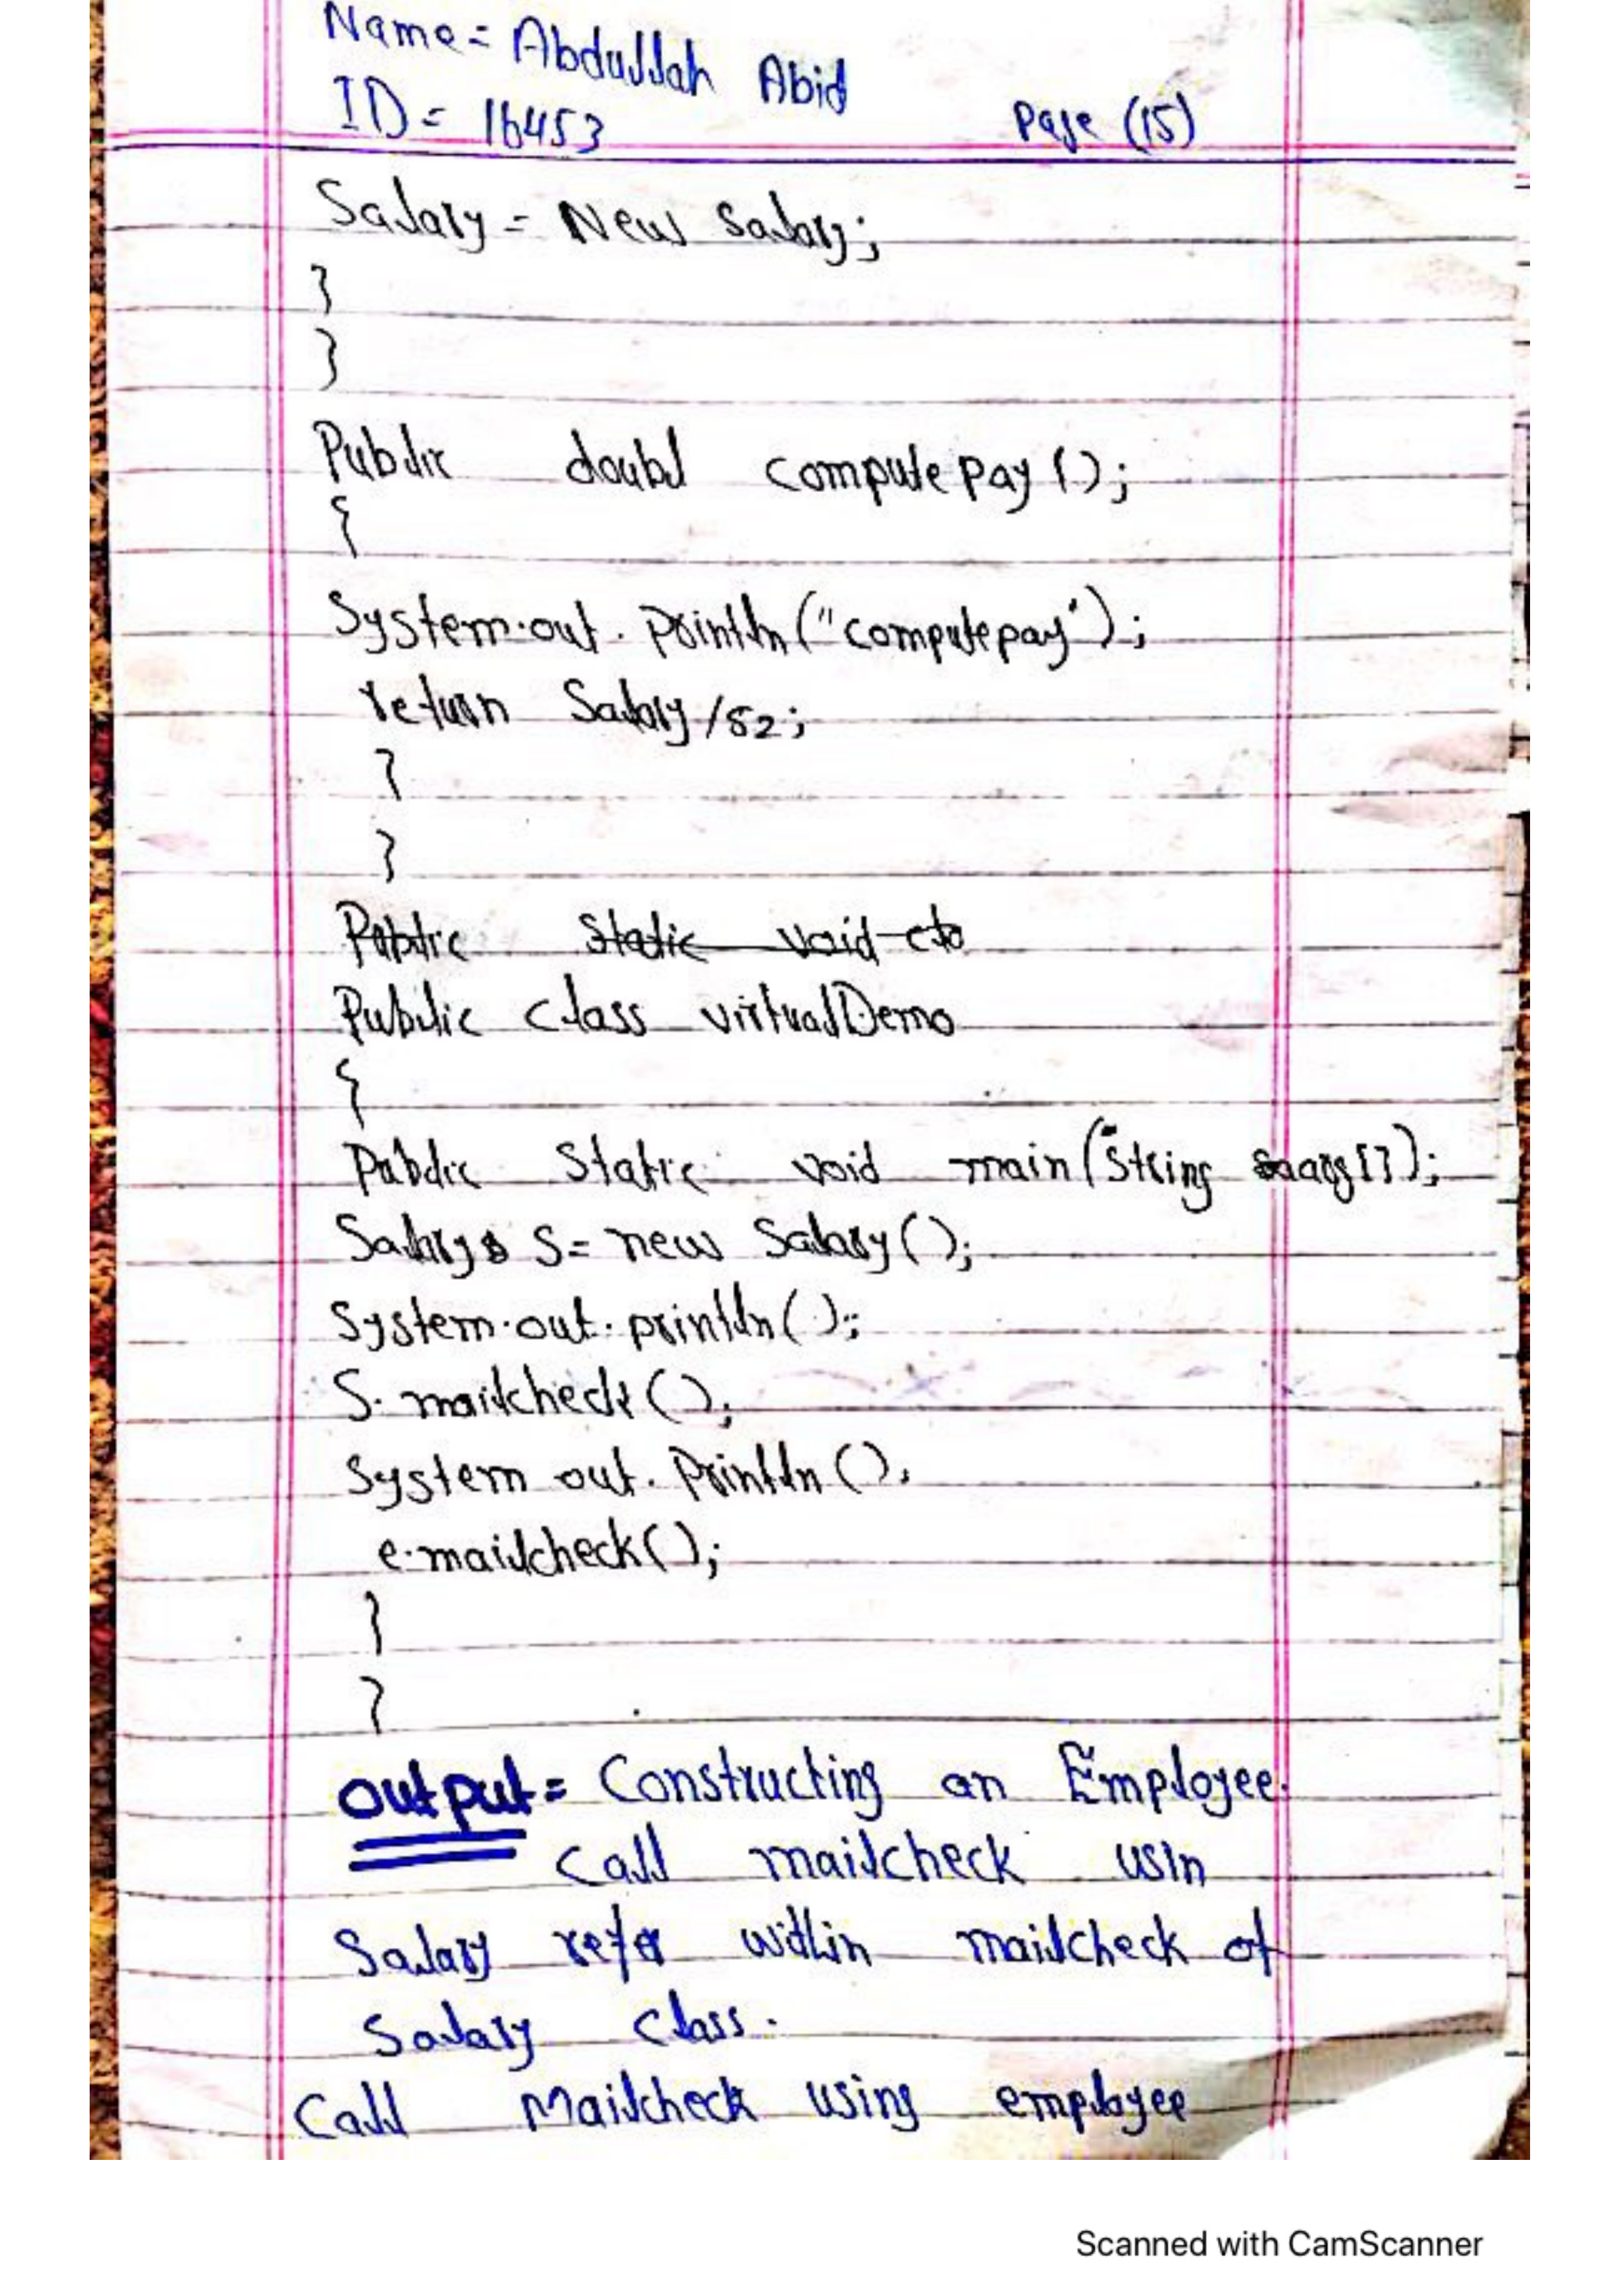 Name = Abdullah Abid
ID = 16453 Page (15)
Salary = New salary;
}
}
Public doubl compute pay ();
{
System.out.println("computepay");
return Salary /52;
}
}
Public Static void
Public class virtualDemo
{
Public Static void main(String args[]);
Salary S = new Salary();
System.out.println();
S.mailcheck();
System out.Println();
e.mailcheck();
}
}
output = Constructing an Employee.
Call mailcheck usin
Salary refer within mailcheck of
Salary class.
Call Mailcheck using employee
Scanned with CamScanner